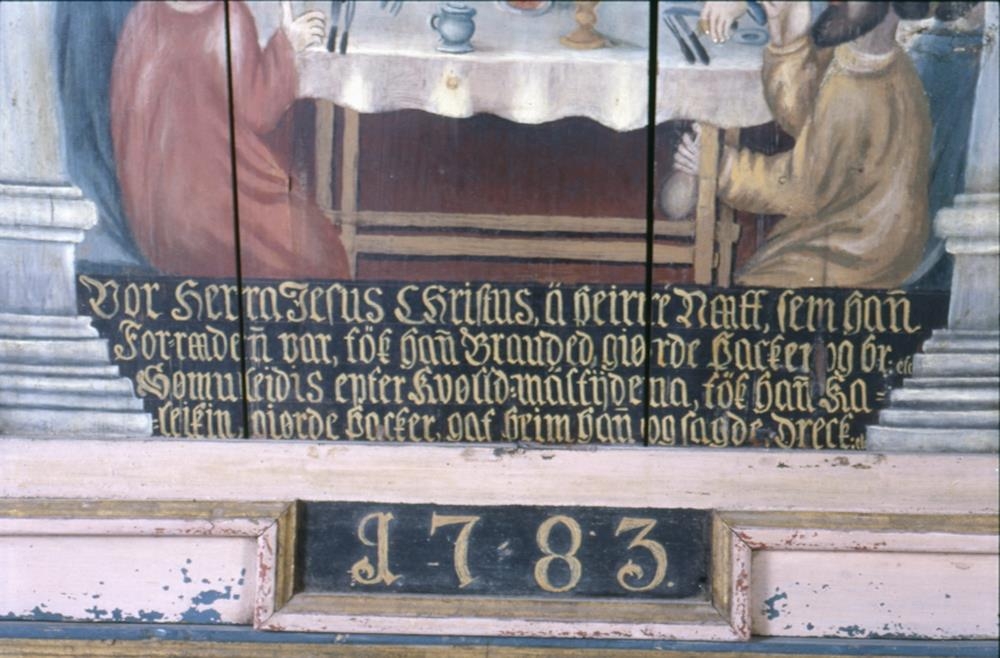 Vor Herra Jesus Christus, ä þeirre Nätt, sem hañ
For-rädeñ var, tök hañ Brauded, giørde Þacker og br: etc
Sømuleidis epter Kvølld-mältijdena, tök hañ Ka-
-leikin, giørde Þacker, gaf þeim hañ og sagde, Dreck: etc
1783